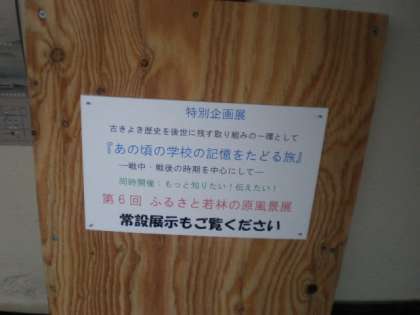 特別企画展
古きよき歴史を後世に残す取り組みの一環として
『あの頃の学校の記憶をたどる旅』
―戦中・戦後の時期を中心にして―
同時開催：もっと知りたい！伝えたい！
第6回 ふるさと若林の原風景展
常設展示もご覧ください